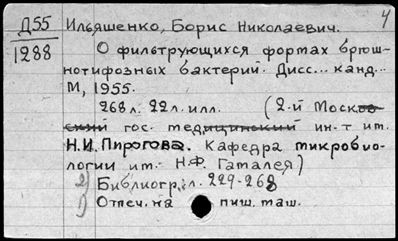 4
Д55 Ильяшенко, Борис Николаевич.
1288 О фильтрующихся формах брюш-
нотифозных бактерий. Дисс... канд...
М, 1955.
268 л. 22 л. илл. (2-й Москов-
ский гос. медицинский ин-т им.
Н.И. Пирогова. Кафедра микробио-
логии им. Н.Ф. Гамалея)
2) Библиогр., л. 229-268
1) Отпеч. на пиш. маш.